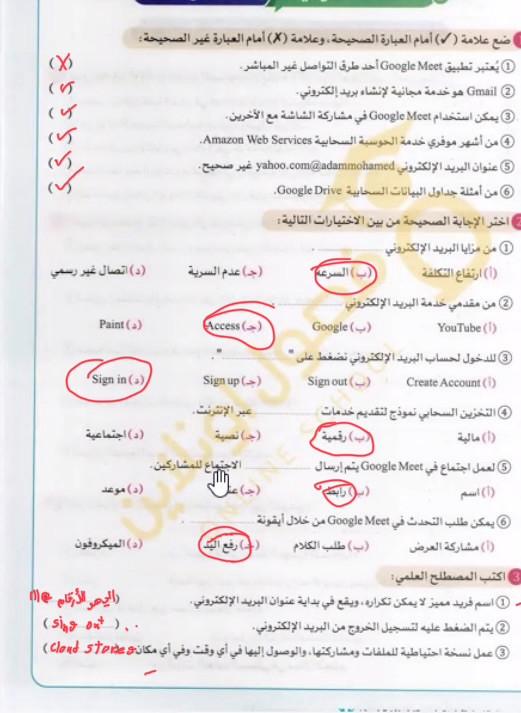 1 ضع علامة (✓) أمام العبارة الصحيحة، وعلامة (✗) أمام العبارة غير الصحيحة:
① يُعتبر تطبيق Google Meet أحد طرق التواصل غير المباشر. (✗)
② Gmail هو خدمة مجانية لإنشاء بريد إلكتروني. (✓)
③ يمكن استخدام Google Meet في مشاركة الشاشة مع الآخرين. (✓)
④ من أشهر موفري خدمة الحوسبة السحابية Amazon Web Services. (✓)
⑤ عنوان البريد الإلكتروني yahoo.com@adammohamed غير صحيح. (✓)
⑥ من أمثلة جداول البيانات السحابية Google Drive. (✓)
2 اختر الإجابة الصحيحة من بين الاختيارات التالية:
① من مزايا البريد الإلكتروني ............ .
(أ) ارتفاع التكلفة (ب) السرعة (جـ) عدم السرية (د) اتصال غير رسمي
② من مقدمي خدمة البريد الإلكتروني ............ .
(أ) YouTube (ب) Google (جـ) Access (د) Paint
③ للدخول لحساب البريد الإلكتروني نضغط على " ............ " .
(أ) Create Account (ب) Sign out (جـ) Sign up (د) Sign in
④ التخزين السحابي نموذج لتقديم خدمات ............ عبر الإنترنت.
(أ) مالية (ب) رقمية (جـ) نصية (د) اجتماعية
⑤ لعمل اجتماع في Google Meet يتم إرسال ............ الاجتماع للمشاركين.
(أ) اسم (ب) رابط (جـ) (د) موعد
⑥ يمكن طلب التحدث في Google Meet من خلال أيقونة ............ .
(أ) مشاركة العرض (ب) طلب الكلام (جـ) رفع اليد (د) الميكروفون
3 اكتب المصطلح العلمي:
① اسم فريد مميز لا يمكن تكراره، ويقع في بداية عنوان البريد الإلكتروني. (
② يتم الضغط عليه لتسجيل الخروج من البريد الإلكتروني. (sing out)
③ عمل نسخة احتياطية للملفات ومشاركتها، والوصول إليها في أي وقت وفي أي مكان. (cloud
ONLINE SCHOOL